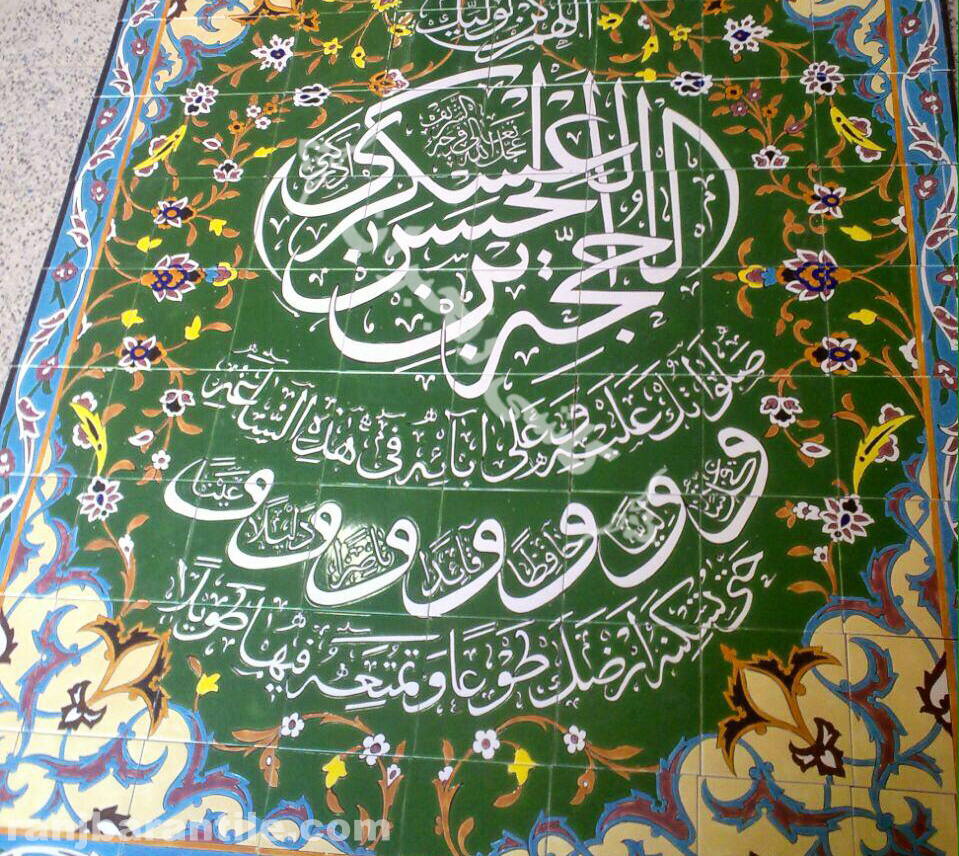 اللهم كن لوليك
الحجة بن الحسن العسكري
عجل الله تعالى فرجه الشريف
صلواتك عليه وعلى آبائه في هذه الساعة
وفي كل ساعة
وليا و حافظا و قائدا و ناصرا و دليلا و عينا
حتى تسكنه ارضك طوعا وتمتعه فيها طويلا
ranjbarandle.com